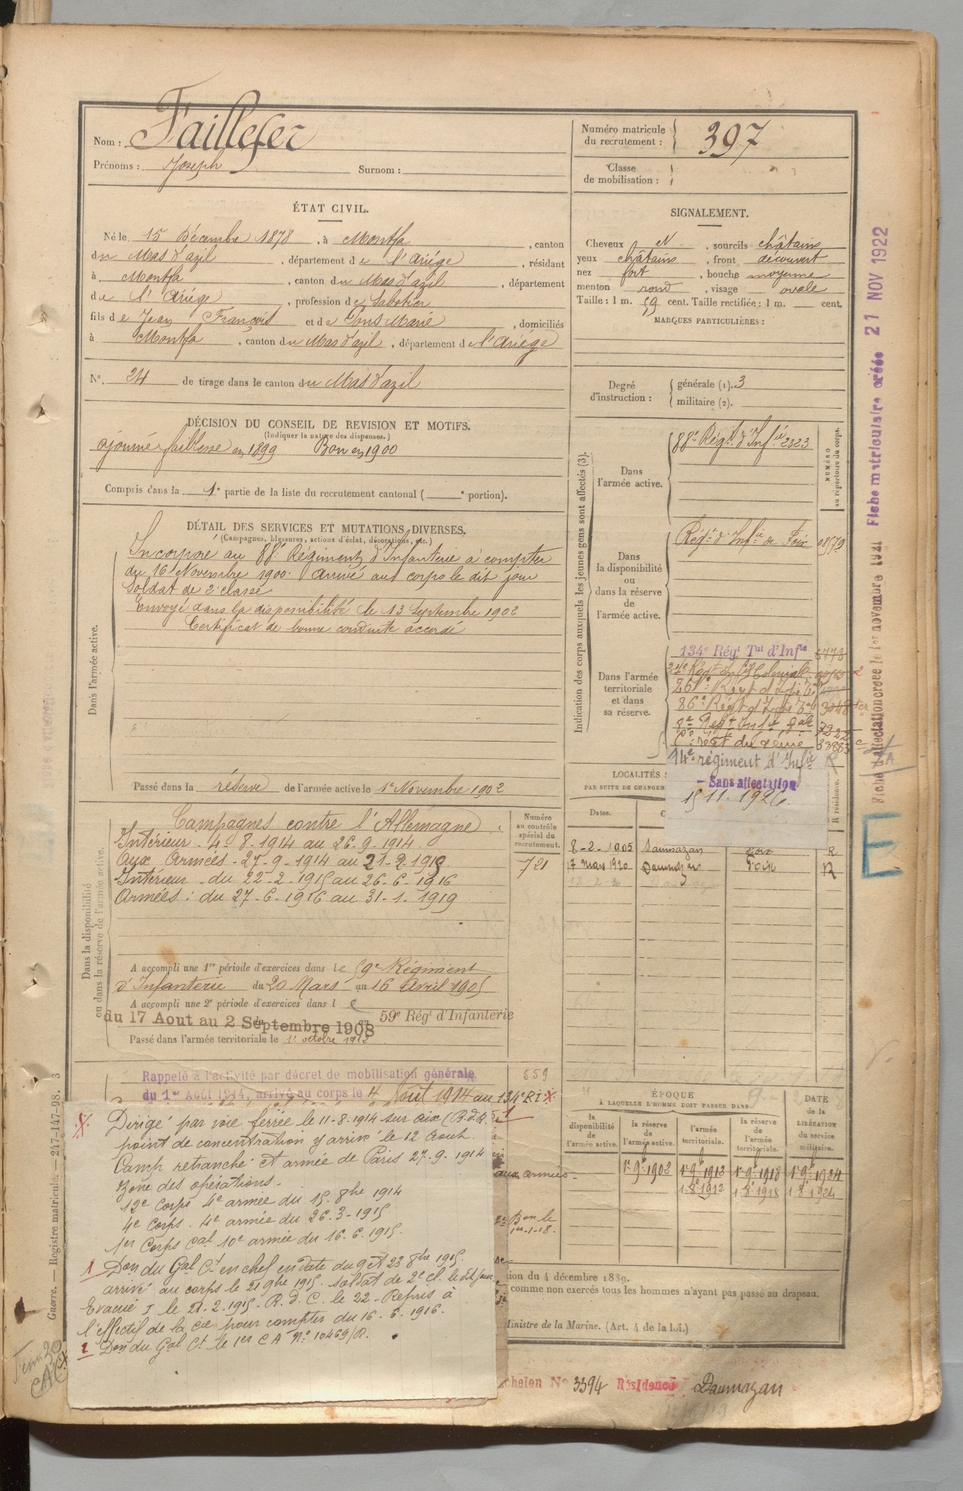 Nom : Faillefer
Numéro matricule du recrutement : 397
Prénoms : Joseph Surnom :
Classe de mobilisation :
ÉTAT CIVIL.
Né le 15 Décembre 1878, à Montfa, canton
du Mas d'azil, département de l'Ariége, résidant
à Montfa, canton du Mas d'azil, département
de l'Ariége, profession de Sabotier
fils de Jean François et de Pons Marie, domiciliés
à Montfa, canton du Mas d'azil, département de l'Ariége
N° 24 de tirage dans le canton du Mas d'azil
SIGNALEMENT.
Cheveux N, sourcils châtains
yeux châtains, front découvert
nez fort, bouche moyenne
menton rond, visage ovale
Taille : 1 m. 59 cent. Taille rectifiée : 1 m. cent.
MARQUES PARTICULIÈRES :
Degré d'instruction : générale (1). 3
militaire (2).
DÉCISION DU CONSEIL DE REVISION ET MOTIFS.
(Indiquer la nature des dispenses.)
ajourné faiblesse en 1899 Bon en 1900
Compris dans la 1e partie de la liste du recrutement cantonal ( e portion).
DÉTAIL DES SERVICES ET MUTATIONS DIVERSES.
(Campagnes, blessures, actions d'éclat, décorations, etc.)
Dans l'armée active.
Incorporé au 88e Régiment d'Infanterie à compter
du 16 Novembre 1900. Arrivé au corps le dit jour
Soldat de 2e classe
Envoyé dans la disponibilité le 13 Septembre 1902
Certificat de bonne conduite accordé
Passé dans la réserve de l'armée active le 1er Novembre 1902
Indication des corps auxquels les jeunes gens sont affectés (3).
NUMÉRO au répertoire du corps.
Dans l'armée active.
88e Régt d'Infie 2323
Dans la disponibilité ou dans la réserve de l'armée active.
Régt d'Infie de Foix
Dans l'armée territoriale et dans sa réserve.
134e Régt Tal d'Infie
86e Régt d'Infie
14e régiment d'Infie
Sans affectation
15 11. 1926
LOCALITÉS
PAR SUITE DE CHANGEM
Dates.
8-2-1905 Daumazan Foix R
7 mars 1920 Daumazan Foix R
Dans la disponibilité ou dans la réserve de l'armée active.
Numéro au contrôle spécial du recrutement.
721
Campagnes contre l'Allemagne.
Intérieur - 4-8-1914 au 26-9-1914
aux Armées - 27-9-1914 au 21-2-1915
Intérieur du 22-2-1915 au 26-6-1916
Armées : du 27-6-1916 au 31-1-1919
A accompli une 1re période d'exercices dans le 59e Régiment
d'Infanterie du 20 Mars au 16 Avril 1905
A accompli une 2e période d'exercices dans le
du 17 Aout au 2 Septembre 1908 59e Régt d'Infanterie
Passé dans l'armée territoriale le 1er octobre 1912
Rappelé à l'activité par décret de mobilisation générale
du 1er Août 1914, arrivé au corps le 4 Août 1914 au 134e R I X
659
X Dirigé par voie ferrée le 11-8-1914 sur Aix (B.d.R.)
point de concentration y arrivé le 12 Aout.
Camp retranché et armée de Paris 27-9-1914
Zone des opérations.
12e Corps 4e armée du 15 8bre 1914
4e Corps. 4e armée du 26-3-1915
1er Corps Cal 10e armée du 16-6-1915.
1 Don du Gal Ct en chef en date du 9 et 23 8bre 1915
arrivé au corps le 21 9bre 1915. Soldat de 2e cl. le dit jour
Evacué I le 21-2-1915. R.d.C. le 22 - Repris à
l'effectif de la Cie pour compter du 16-6-1916.
2 Don du Gal Ct le 1er C A N° 10469/R.
aux armées
ÉPOQUE
À LAQUELLE L'HOMME DOIT PASSER DANS
la disponibilité de l'armée active.
la réserve de l'armée active.
l'armée territoriale.
la réserve de l'armée territoriale.
DATE de la LIBÉRATION du service militaire.
1er 9b 1902 1er 9b 1912 1er 9b 1918 1er 9b 1924
1 8b 1912 1 8b 1918 1 8b 1924
ion du 4 décembre 1889.
comme non exercés tous les hommes n'ayant pas passé au drapeau.
Ministre de la Marine. (Art. 4 de la loi.)
chelon N° 3394 Résidence Daumazan
Guerre. — Registre matricule. — 247-147-98. 3
Fiche d'affectation créée le 1er novembre 1921 Fiche matriculaire créée 21 NOV 1922
E